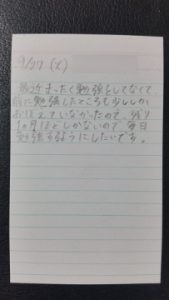 9/27 (火)
最近まったく勉強をしてなくて、
前に勉強したところも少ししか
おぼえていなかったので、残り
1ヵ月ほどしかないので毎日
勉強するようにしたいです。